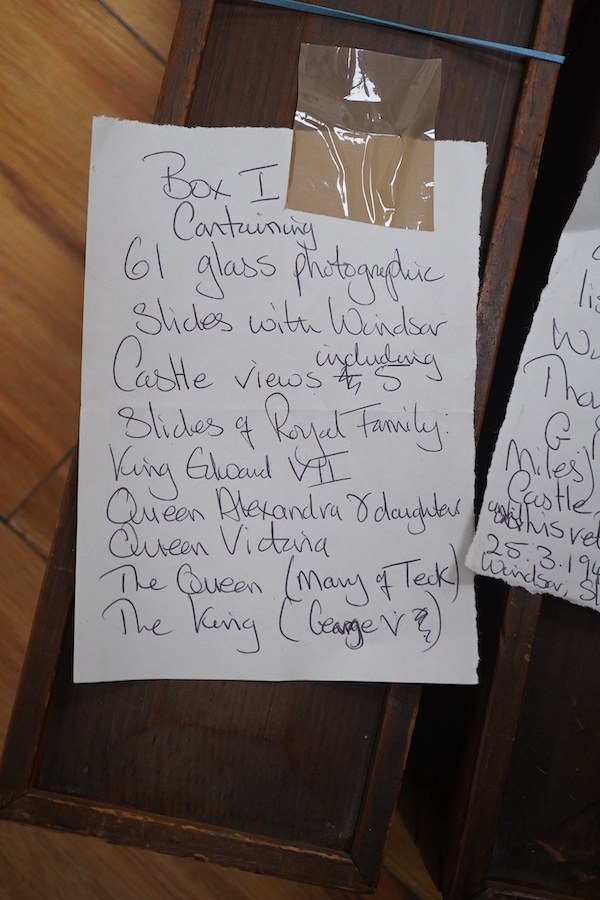 Box I
Containing
61 glass photographic
slides with Windsor
Castle views including 5
Slides of Royal Family:
King Edward VII
Queen Alexandra & daughters
Queen Victoria
The Queen (Mary of Teck)
The King (George V)
lis
Wi
Tha
G
Miles)
Castle
this re
25.3.194
Windsor, Sl